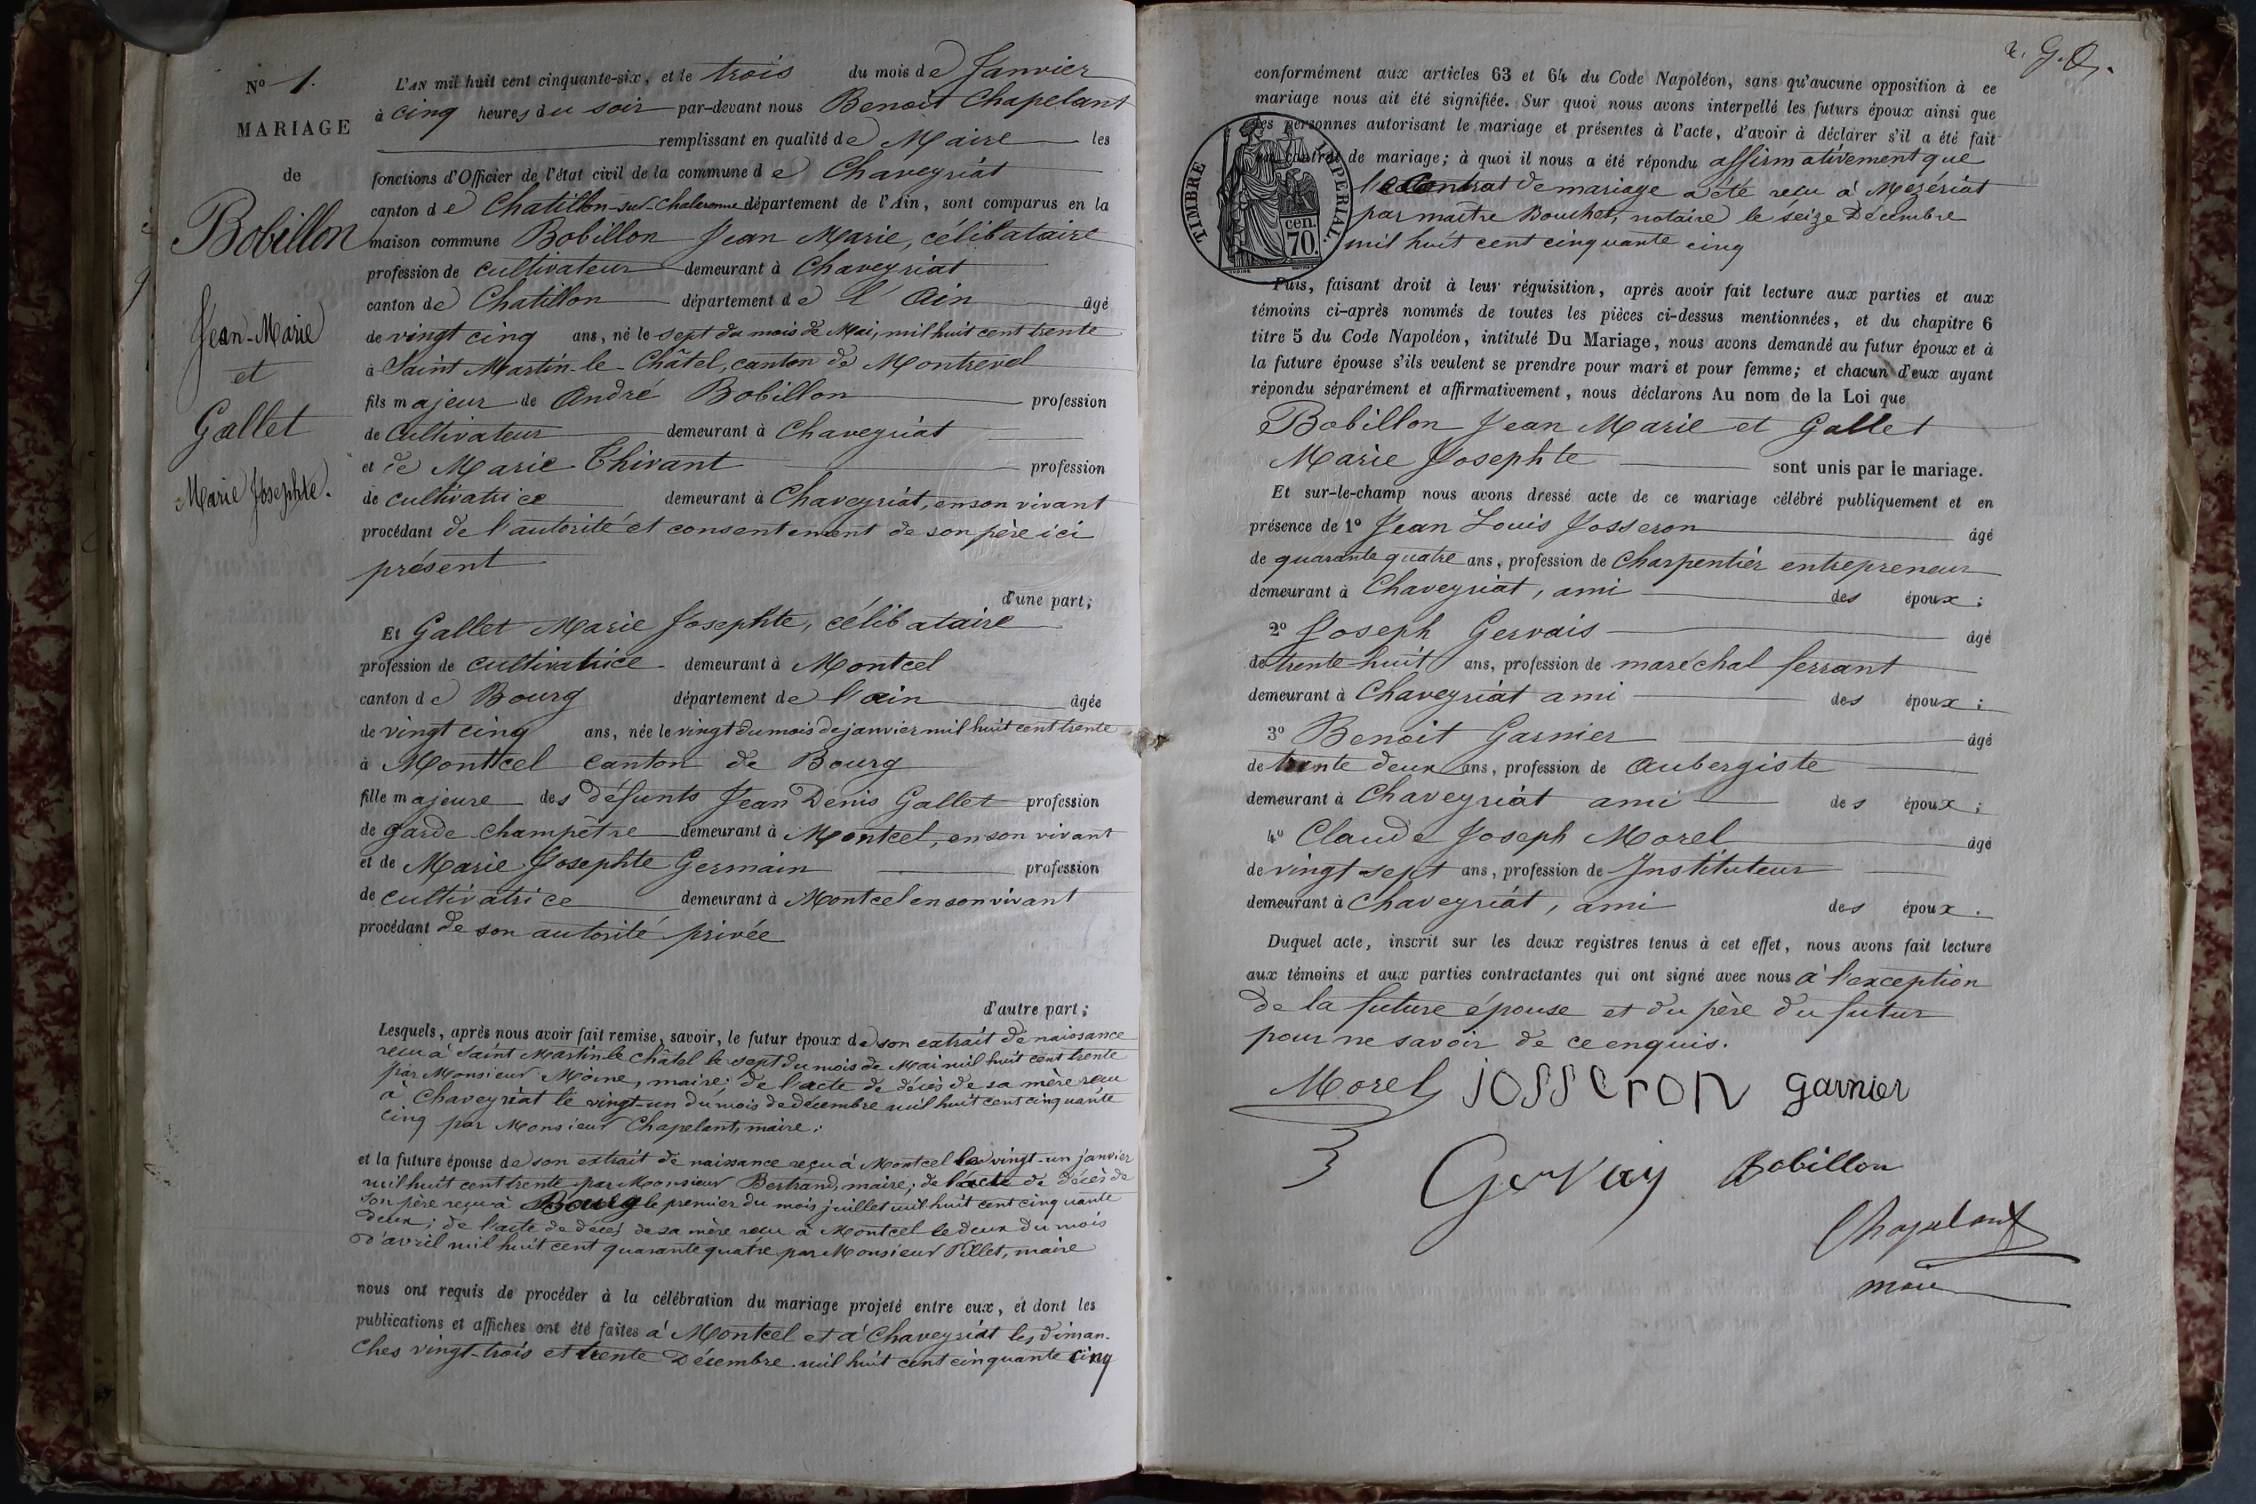 N° 1.
MARIAGE
de
Bobillon
Jean-Marie
et
Gallet
Marie Josephte.
L'AN mil huit cent cinquante-six, et le trois du mois de Janvier
à cinq heures du soir par-devant nous Benoit Chapelant
remplissant en qualité de Maire les
fonctions d'Officier de l'état civil de la commune de Chaveyriat
canton de Chatillon-sur-Chalaronne département de l'Ain, sont comparus en la
maison commune Bobillon Jean Marie, célibataire
profession de cultivateur demeurant à Chaveyriat
canton de Chatillon département de l'Ain âgé
de vingt cinq ans, né le sept du mois de Mai, mil huit cent trente
à Saint Martin-le-Châtel, canton de Montrevel
fils majeur de André Bobillon profession
de Cultivateur demeurant à Chaveyriat
et de Marie Thivant profession
de cultivatrice demeurant à Chaveyriat, en son vivant
procédant de l'autorité et consentement de son père ici
présent
d'une part;
Et Gallet Marie Josephte, célibataire
profession de cultivatrice demeurant à Montcel
canton de Bourg département de l'ain âgée
de vingt cinq ans, née le vingt du mois de janvier mil huit cent trente
à Montcel canton de Bourg
fille majeure des défunts Jean Denis Gallet profession
de garde-champêtre demeurant à Montcel, en son vivant
et de Marie Josephte Germain profession
de cultivatrice demeurant à Montcel en son vivant
procédant de son autorité privée
d'autre part;
Lesquels, après nous avoir fait remise, savoir, le futur époux de son extrait de naissance
reçu à Saint Martin-le Châtel le sept du mois de Mai mil huit cent trente
par Monsieur Moine, maire; de l'acte de décès de sa mère reçu
à Chaveyriat le vingt-un du mois de décembre mil huit cent cinquante
cinq par Monsieur Chapelant, maire;
et la future épouse de son extrait de naissance reçu à Montcel le vingt-un janvier
mil huit cent trente par Monsieur Bertrand, maire; de l'acte de décès de
son père reçu à Bourg le premier du mois juillet mil huit cent cinquante
deux; de l'acte de décès de sa mère reçu à Montcel le deux du mois
d'avril mil huit cent quarante quatre par Monsieur Pillet, maire
nous ont requis de procéder à la célébration du mariage projeté entre eux, et dont les
publications et affiches ont été faites à Montcel et à Chaveyriat les diman-
ches vingt-trois et trente Décembre mil huit cent cinquante cinq
conformément aux articles 63 et 64 du Code Napoléon, sans qu'aucune opposition à ce
mariage nous ait été signifiée. Sur quoi nous avons interpellé les futurs époux ainsi que
les personnes autorisant le mariage et présentes à l'acte, d'avoir à déclarer s'il a été fait
un contrat de mariage; à quoi il nous a été répondu affirmativement que
le Contrat de mariage a été reçu à Mezériat
par maître Bouchet, notaire le seize Décembre
mil huit cent cinquante cinq
TIMBRE IMPERIAL.
cen.
70.
Puis, faisant droit à leur réquisition, après avoir fait lecture aux parties et aux
témoins ci-après nommés de toutes les pièces ci-dessus mentionnées, et du chapitre 6
titre 5 du Code Napoléon, intitulé Du Mariage, nous avons demandé au futur époux et à
la future épouse s'ils veulent se prendre pour mari et pour femme; et chacun d'eux ayant
répondu séparément et affirmativement, nous déclarons Au nom de la Loi que
Bobillon Jean Marie et Gallet
Marie Josephte sont unis par le mariage.
Et sur-le-champ nous avons dressé acte de ce mariage célébré publiquement et en
présence de 1° Jean Louis Josseron âgé
de quarante quatre ans, profession de Charpentier entrepreneur
demeurant à Chaveyriat, ami des époux;
2° Joseph Gervais âgé
de trente huit ans, profession de maréchal ferrant
demeurant à Chaveyriat ami des époux;
3° Benoit Garnier âgé
de trente deux ans, profession de Aubergiste
demeurant à Chaveyriat ami des époux;
4° Claude Joseph Morel âgé
de vingt-sept ans, profession de Instituteur
demeurant à Chaveyriat, ami des époux.
Duquel acte, inscrit sur les deux registres tenus à cet effet, nous avons fait lecture
aux témoins et aux parties contractantes qui ont signé avec nous à l'exception
de la future épouse et du père du futur
pour ne savoir de ce enquis.
Morel josseron garnier
Gervay Bobillon
Chapelant
maire